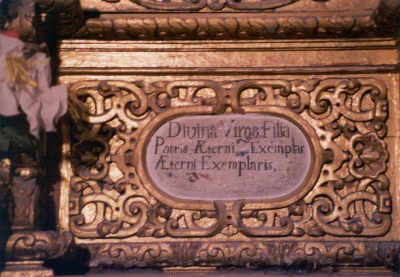 Divina Virgo Filia
Patris Æterni Exemplar
Æterni Exemplaris,